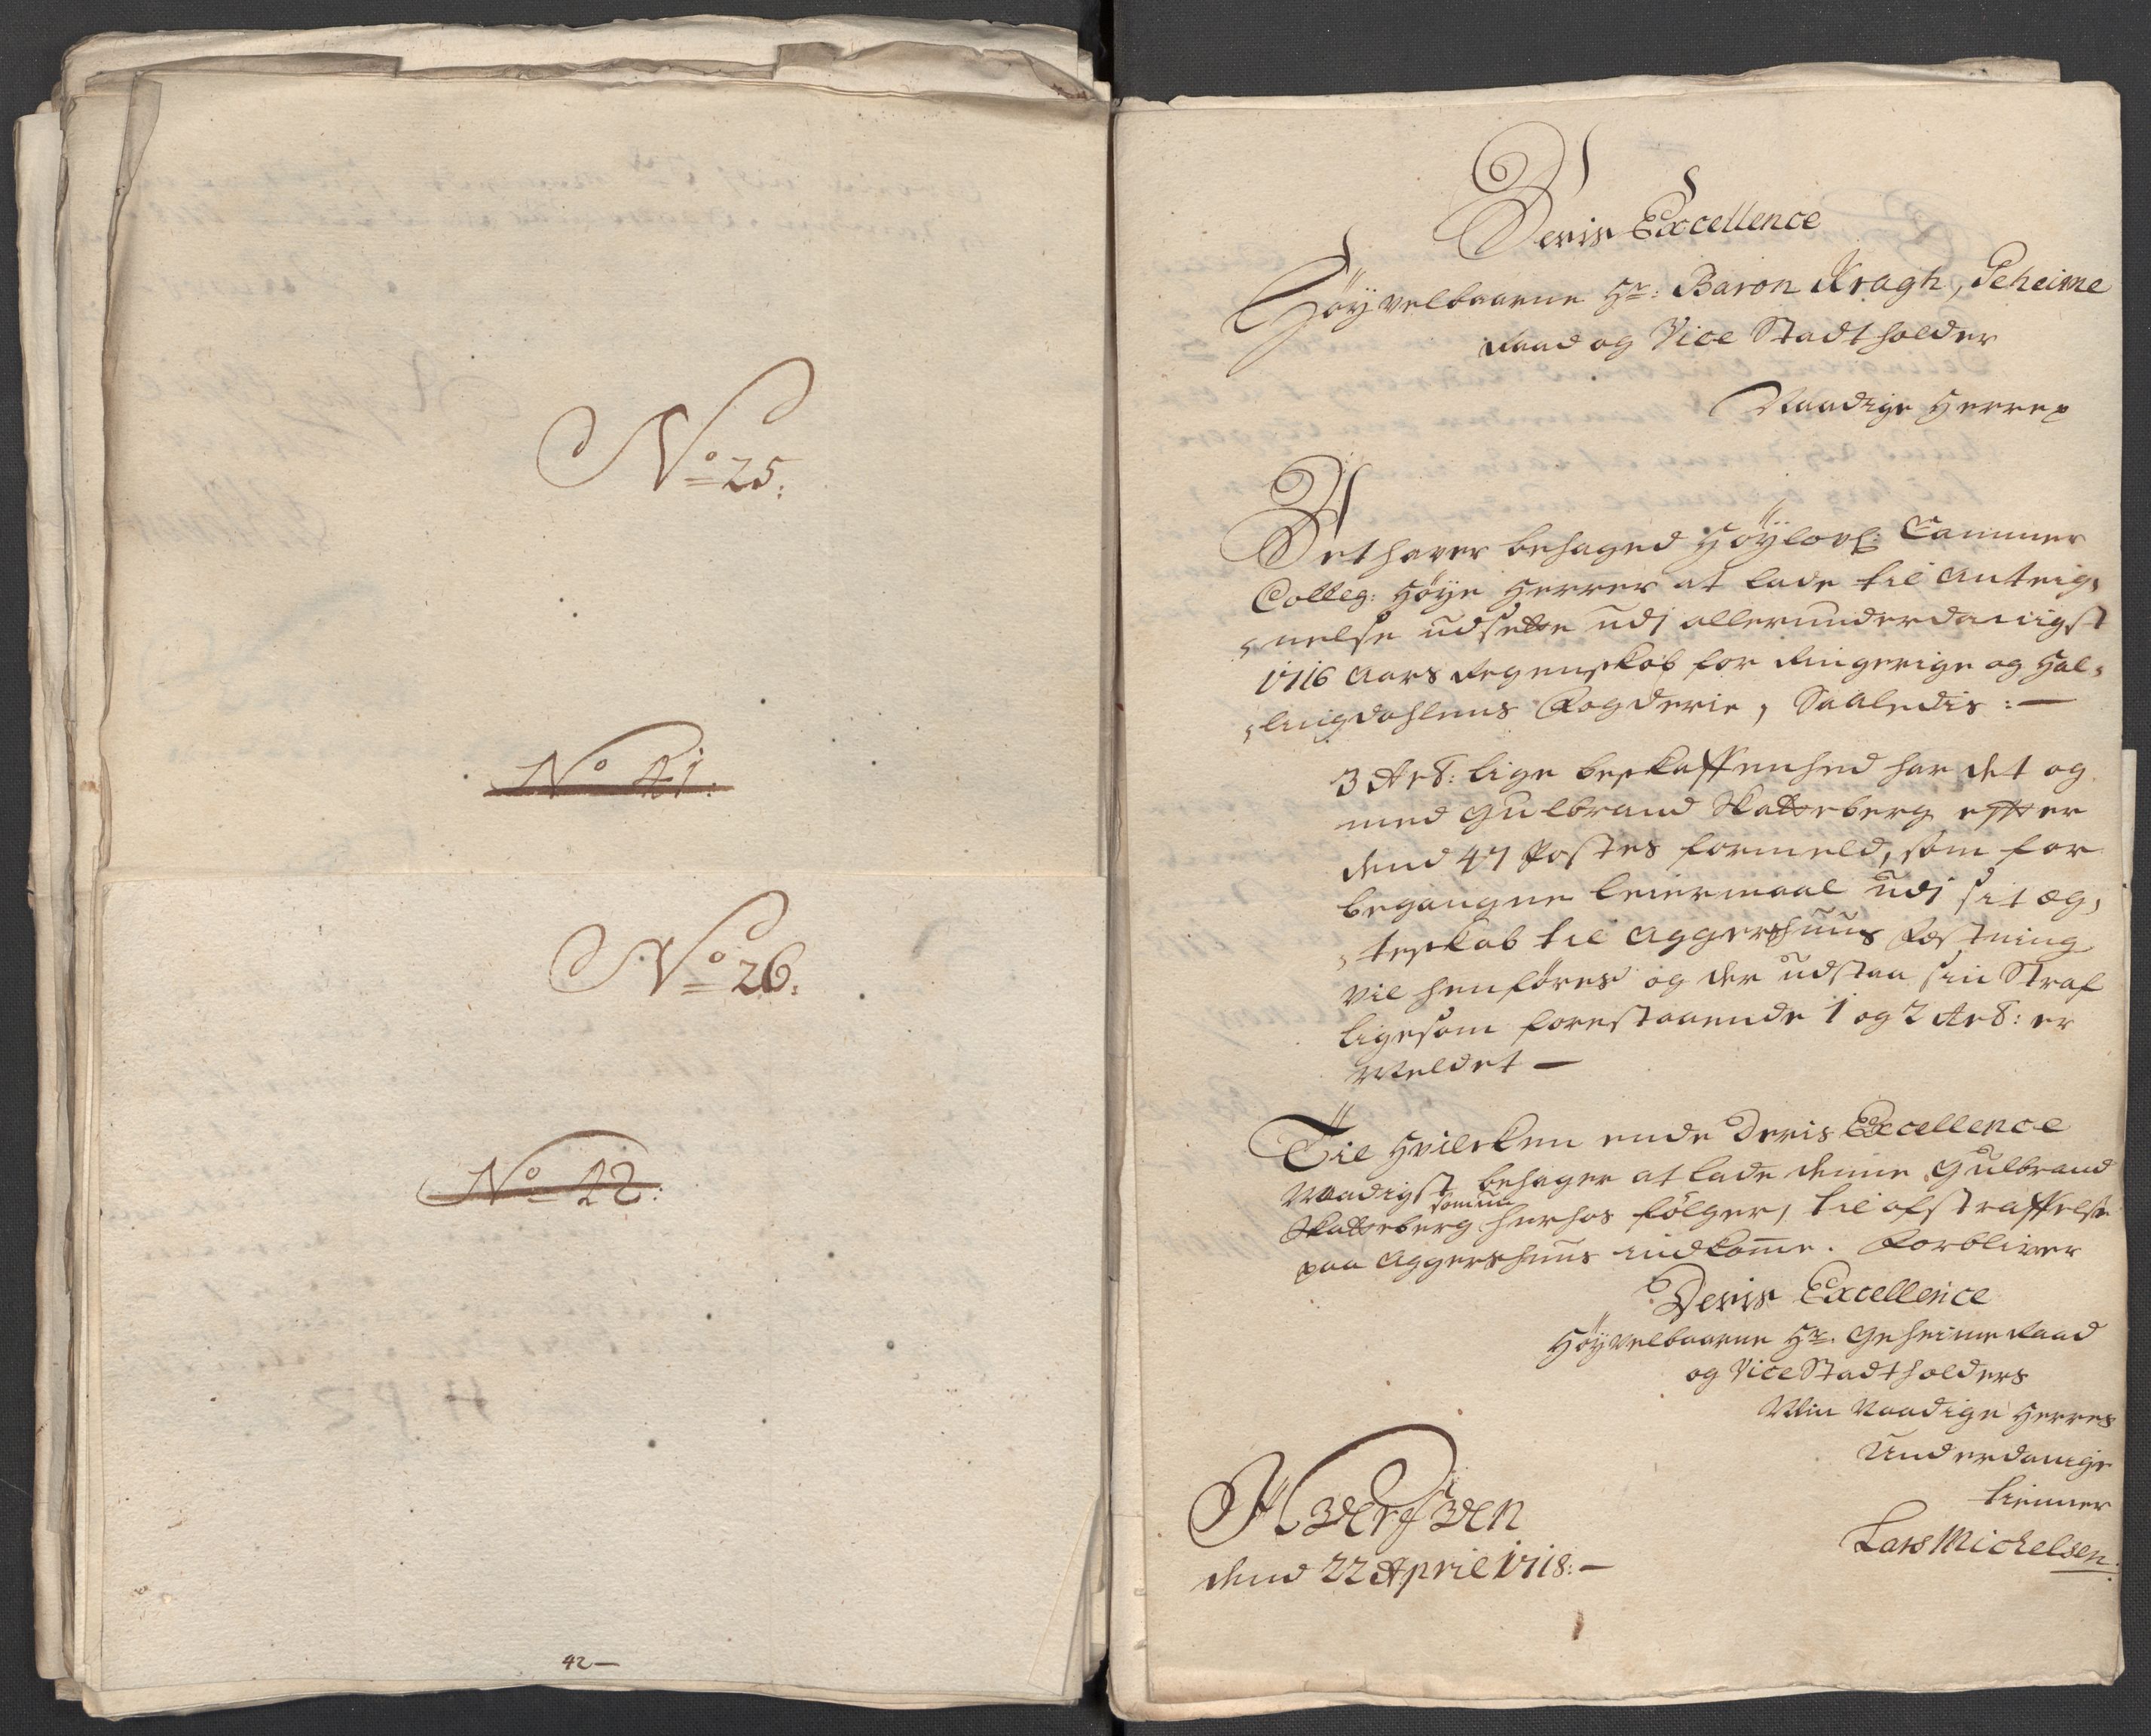 No 25:
No 41:
No 26:
No 42:
42 —
Deris Excellence
Høyvelbaarne Hr: Baron Kragh, Geheime
Raad og Vice Stadtholder
Naadige Herre
Det haver behaged Høylovl: Cammer
Colleg: Høye Herrer at lade til Anteig,
,nelse udsette udj allerunderdanigst
1716 Aars Regenskab for Ringerige og Hal,
,lingdahlens Fogderie, Saaledis: —
3 Art: lige beskaffenhed har det og
med Gulbrand Skatteberg efter
dend 47 Postes formeld, som for
begangne leiermaal udj sit æg,
,teskab til Aggershuus Fæstning
vil henføres og der udstaa sin Straf
ligesom forestaaende 1 og 2 Art: er
Meldet —
Til Hvilcken ende Deris Excellence
Naadigst behager at lade denne Gulbrand
Skatteberg somm herhos følger, til afstraffelse
paa Aggershuus indkomme. Forbliver
Deris Excellence
Høyvelbaarne Hr. Geheime Raad
og Vice Stadtholders
Min Naadige Herres
Underdanige
tienner
Lars Michelsen.
dend 22 April 1718: —